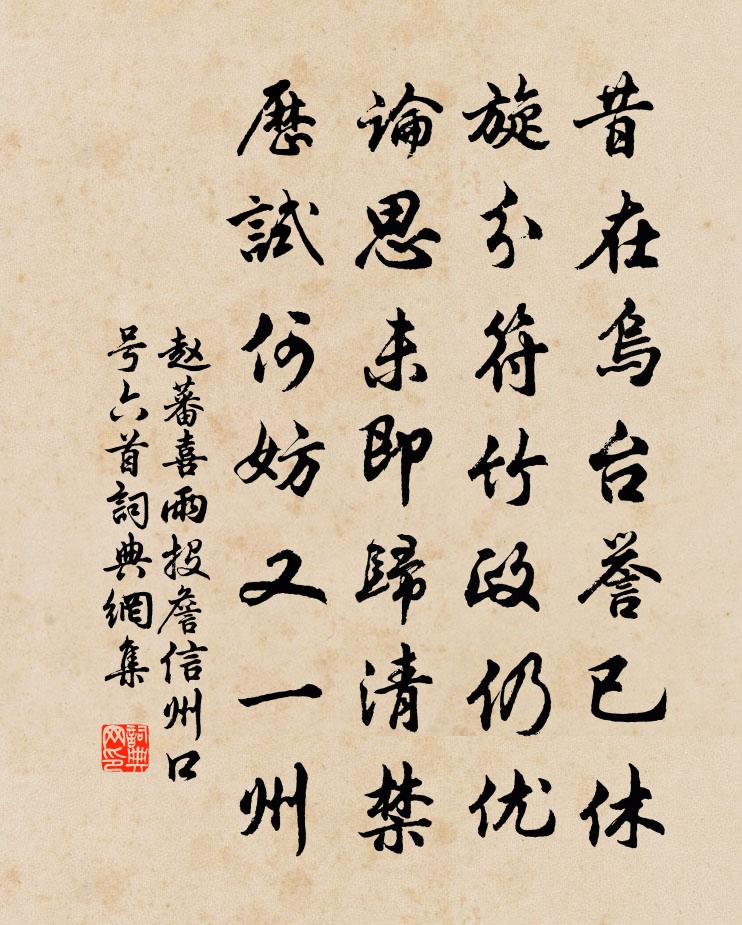 昔在烏台誉已休
旋分符竹政仍优
論思未即歸清禁
歷試何妨又一州
赵蕃喜雨投詹信州口
号六首詞典網集
詞典网印